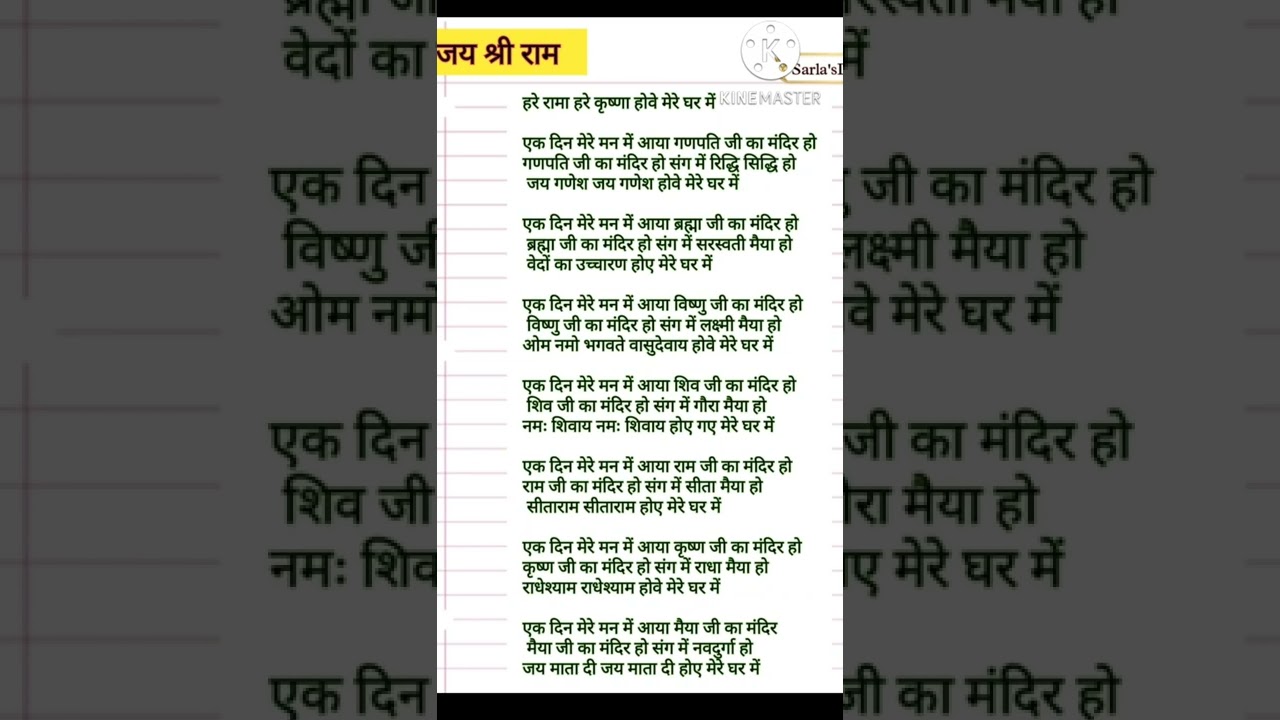 जय श्री राम
Sarla's
KINEMASTER
हरे रामा हरे कृष्णा होवे मेरे घर में
एक दिन मेरे मन में आया गणपति जी का मंदिर हो
गणपति जी का मंदिर हो संग में रिद्धि सिद्धि हो
जय गणेश जय गणेश होवे मेरे घर में
एक दिन मेरे मन में आया ब्रह्मा जी का मंदिर हो
ब्रह्मा जी का मंदिर हो संग में सरस्वती मैया हो
वेदों का उच्चारण होए मेरे घर में
एक दिन मेरे मन में आया विष्णु जी का मंदिर हो
विष्णु जी का मंदिर हो संग में लक्ष्मी मैया हो
ओम नमो भगवते वासुदेवाय होवे मेरे घर में
एक दिन मेरे मन में आया शिव जी का मंदिर हो
शिव जी का मंदिर हो संग में गौरा मैया हो
नमः शिवाय नमः शिवाय होए गए मेरे घर में
एक दिन मेरे मन में आया राम जी का मंदिर हो
राम जी का मंदिर हो संग में सीता मैया हो
सीताराम सीताराम होए मेरे घर में
एक दिन मेरे मन में आया कृष्ण जी का मंदिर हो
कृष्ण जी का मंदिर हो संग में राधा मैया हो
राधेश्याम राधेश्याम होवे मेरे घर में
एक दिन मेरे मन में आया मैया जी का मंदिर
मैया जी का मंदिर हो संग में नवदुर्गा हो
जय माता दी जय माता दी होए मेरे घर में